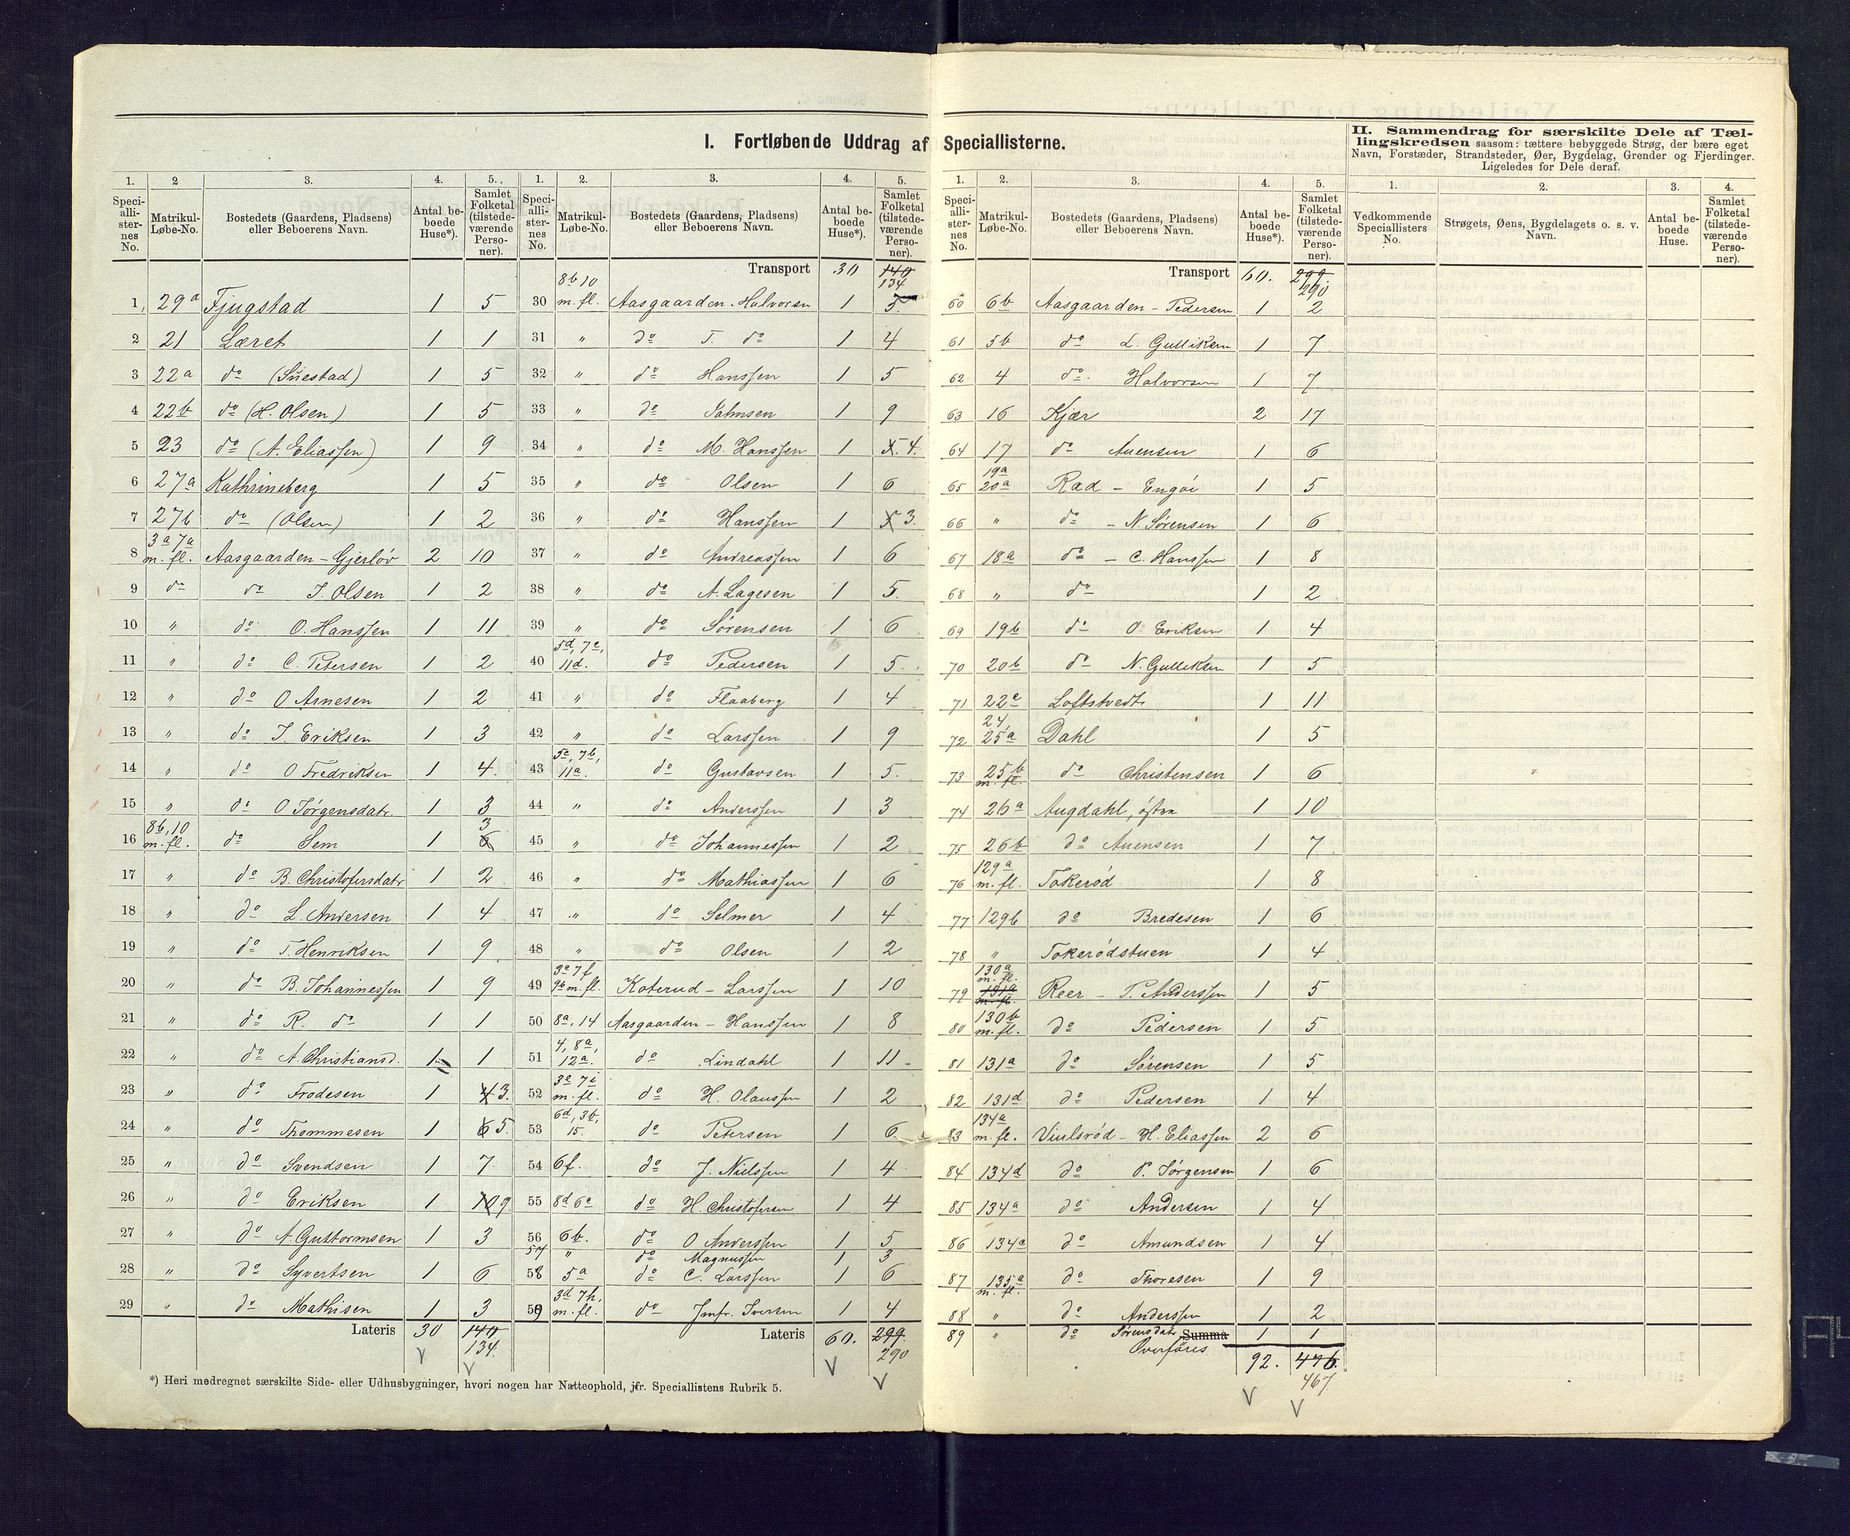 I. Fortløbende Uddrag af Speciallisterne.
II. Sammendrag for særskilte Dele af Tæl-
lingskredsen saasom: tættere bebyggede Strøg, der bære eget
Navn, Forstæder, Strandsteder, Øer, Bygdelag, Grender og Fjerdinger.
Ligeledes for Dele deraf.
1. 2 3. 4. 5.
Speci-alli-ster-nes No. Matrikul-Løbe-No. Bostedets (Gaardens, Pladsens) eller Beboerens Navn. Antal be-boede Huse*). Samlet Folketal (tilstede-værende Perso-ner).
1, 29a Fjugstad 1 5
2 21 Læret 1 1
3 22a do (Suestad) 1 5
4 22b do (H. Olsen) 1 5
5 23 do (A. Eliassen) 1 9
6 27a Kathrineberg 1 5
7 27b do (Olsen) 1 2
8 3a 7a m. fl. Aasgaarden - Gjerløv 2 10
9 do do J. Olsen 1 2
10 " do O. Hanssen 1 11
11 " do C. Petersen 1 2
12 " do O Arnesen 1 2
13 " do J. Eriksen 1 3
14 " do O Fredriksen 1 4.
15 " do O Jørgensdatr. 1 3
16 8b, 10 m. fl. do Sem 1 6 3
17 " do B. Christofersdatr 1 2
18 " do L. Andersen 1 4
19 " do T. Henriksen 1 9
20 " do B. Johannessen 1 9
21 " do R. do 1 1
22 " do A. Christiansd. 1 1
23 " do Frodesen 1 4 3.
24 " do Thommesen 1 6 5.
25 " do Svendsen 1 7
26 " do Eriksen 1 10 9
27 " do A. Guttormsen 1 3
28 " do Syvertsen 1 6
29 " do Mathisen 1 3
Lateris 30 140
134.
*) Heri medregnet særskilte Side- eller Udhusbygninger, hvori nogen har Natteophold, jfr. Speciallistens Rubrik 5.
1. 2. 3. 4. 5.
Speci-alli-ster-nes No. Matrikul-Løbe-No. Bostedets (Gaardens, Pladsens) eller Beboerens Navn. Antal be-boede Huse*). Samlet Folketal (tilstede-værende Perso-ner).
Transport 30 140 134
30 8b 10 m. fl. Aasgaarden - Halvorsen 1 5
31 " do T. do 1 4
32 " do Hanssen 1 5
33 " do Jahnsen 1 9
34 " do M. Hanssen 1 4.
35 " do Olsen 1 6
36 " do Hanssen 1 3.
37 " do Andreassen 1 6
38 " do A. Lagesen 1 5.
39 " do Sørensen 1 6
40 5d, 7e, 11d. do Pedersen 1 5.
41 " do Flaaberg 1 4
42 " do Larssen 1 9
43 5c, 7b, 11a. do Gustavsen 1 5.
44 " do Anderssen 1 3
45 " do Johannessen 1 2
46 " do Mathiassen 1 6
47 " do Selmer 1 4
48 " do Olsen 1 2
49 3e 7f 9b m. fl. Koterud - Larssen 1 10
50 8a, 14 Aasgaarden - Hanssen 1 8
51 4, 8a, 12a. do Lindahl 1 11
52 3e 7i m. fl. do H. Olaussen 1 2
53 6d, 3b, 15. do Petersen 1 6
54 6f. do J. Nielssen 1 4
55 8d 6e do H. Christofersen 1 4
56 6b. do O Anderssen 1 5
57 " do Magnussen 1 3
58 5a do C. Larssen 1 6
59 3d 7h. m. fl. do Jmfr. Iversen 1 4
Lateris 60. 299.
290
1. 2. 3. 4. 5.
Speci-alli-ster-nes No. Matrikul-Løbe-No. Bostedets (Gaardens, Pladsens) eller Beboerens Navn. Antal be-boede Huse*). Samlet Folketal (tilstede-værende Perso-ner).
Transport 60. 299 290
60 6b Aasgaarden - Pedersen 1 2
61 5b do L. Gulliksen 1 7
62 4 do Halvorsen 1 7
63 16 Kjær 2 17
64 17 do Auensen 1 6
65 19a 20a Rad - Engøi 1 5
66 " do - N. Sørensen 1 6
67 18a do - C. Hanssen 1 8
68 " do 1 2
69 19b do O Eriksen 1 4
70 20b do N. Gulliksen 1 5
71 22c Loftstvedt 1 11
72 24, 25a Dahl 1 5
73 25b m. fl. do Christensen 1 6
74 26a Augdahl, østre 1 10
75 26b do Auensen 1 7
76 129a m. fl. Tokerød 1 8
77 129b do Bredesen 1 6
78 " Tokerødstuen 1 4
79 130a m. fl. 131a m. fl. Reer - P. Anderssen 1 5
80 130b m. fl. do Pedersen 1 5
81 131a do Sørensen 1 5
82 131d do Pedersen 1 4
83 134a m. fl. Viulsrød - H. Eliassen 2 6
84 134d do P. Jørgensen 1 6
85 134a do Andersen 1 4
86 134a do Amundsen 1 4
87 135a m. fl. do Thoresen 1 9
88 " do Anderssen 1 2
89 " do Sørensdatr Summa 1 1
Overføres 92. 476.
467
1. 2. 3. 4.
Vedkommende Speciallisters No. Strøgets, Øens, Bygdelagets o. s. v. Navn. Antal be-boede Huse. Samlet Folketal (tilstede-værende Perso-ner).